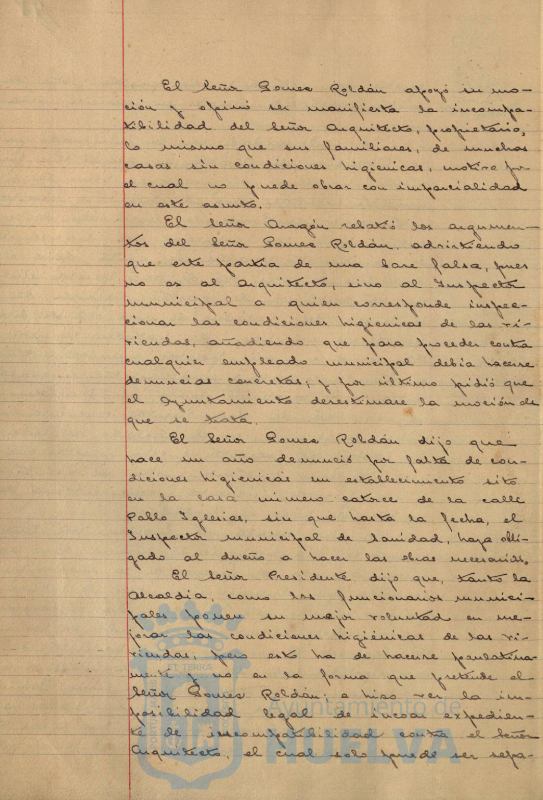 El Señor Gomez Roldán apoyó su mo-
ción y opinó ser manifiesta la incompa-
tibilidad del Señor Arquitecto, propietario,
lo mismo que sus familiares, de muchas
casas sin condiciones higienicas, motivo por
el cual no puede obrar con imparcialidad
en este asunto.
El Señor Aragón rebatió los argumen-
tos del Señor Gomez Roldán, advirtiendo
que este partia de una base falsa, pues
no es al Arquitecto, sino al Inspector
municipal a quien corresponde inspec-
cionar las condiciones higienicas de las vi-
viendas, añadiendo que para proceder contra
cualquier empleado municipal debia hacerse
denuncias concretas; y por último pidió que
el Ayuntamiento desestimase la moción de
que se trata.
El Señor Gomez Roldán dijo que
hace un año denunció por falta de con-
diciones higienicas un establecimiento sito
en la casa número catorce de la calle
Pablo Iglesias, sin que hasta la fecha, el
Inspector municipal de Sanidad, haya obli-
gado al dueño a hacer las obras necesarias.
El Señor Presidente dijo que, tanto la
Alcaldia, como los funcionarios munici-
pales ponen su mejor voluntad en me-
jorar las condiciones higiénicas de las vi-
viendas, pero esto ha de hacerse paulatina-
mente y no en la forma que pretende el
Señor Gomez Roldán; e hizo ver la im-
posibilidad legal de incoar expedien-
te de incompatibilidad contra el Señor
Arquitecto, el cual solo puede ser sepa-
ET TERRA
Ayuntamiento de
HUELVA